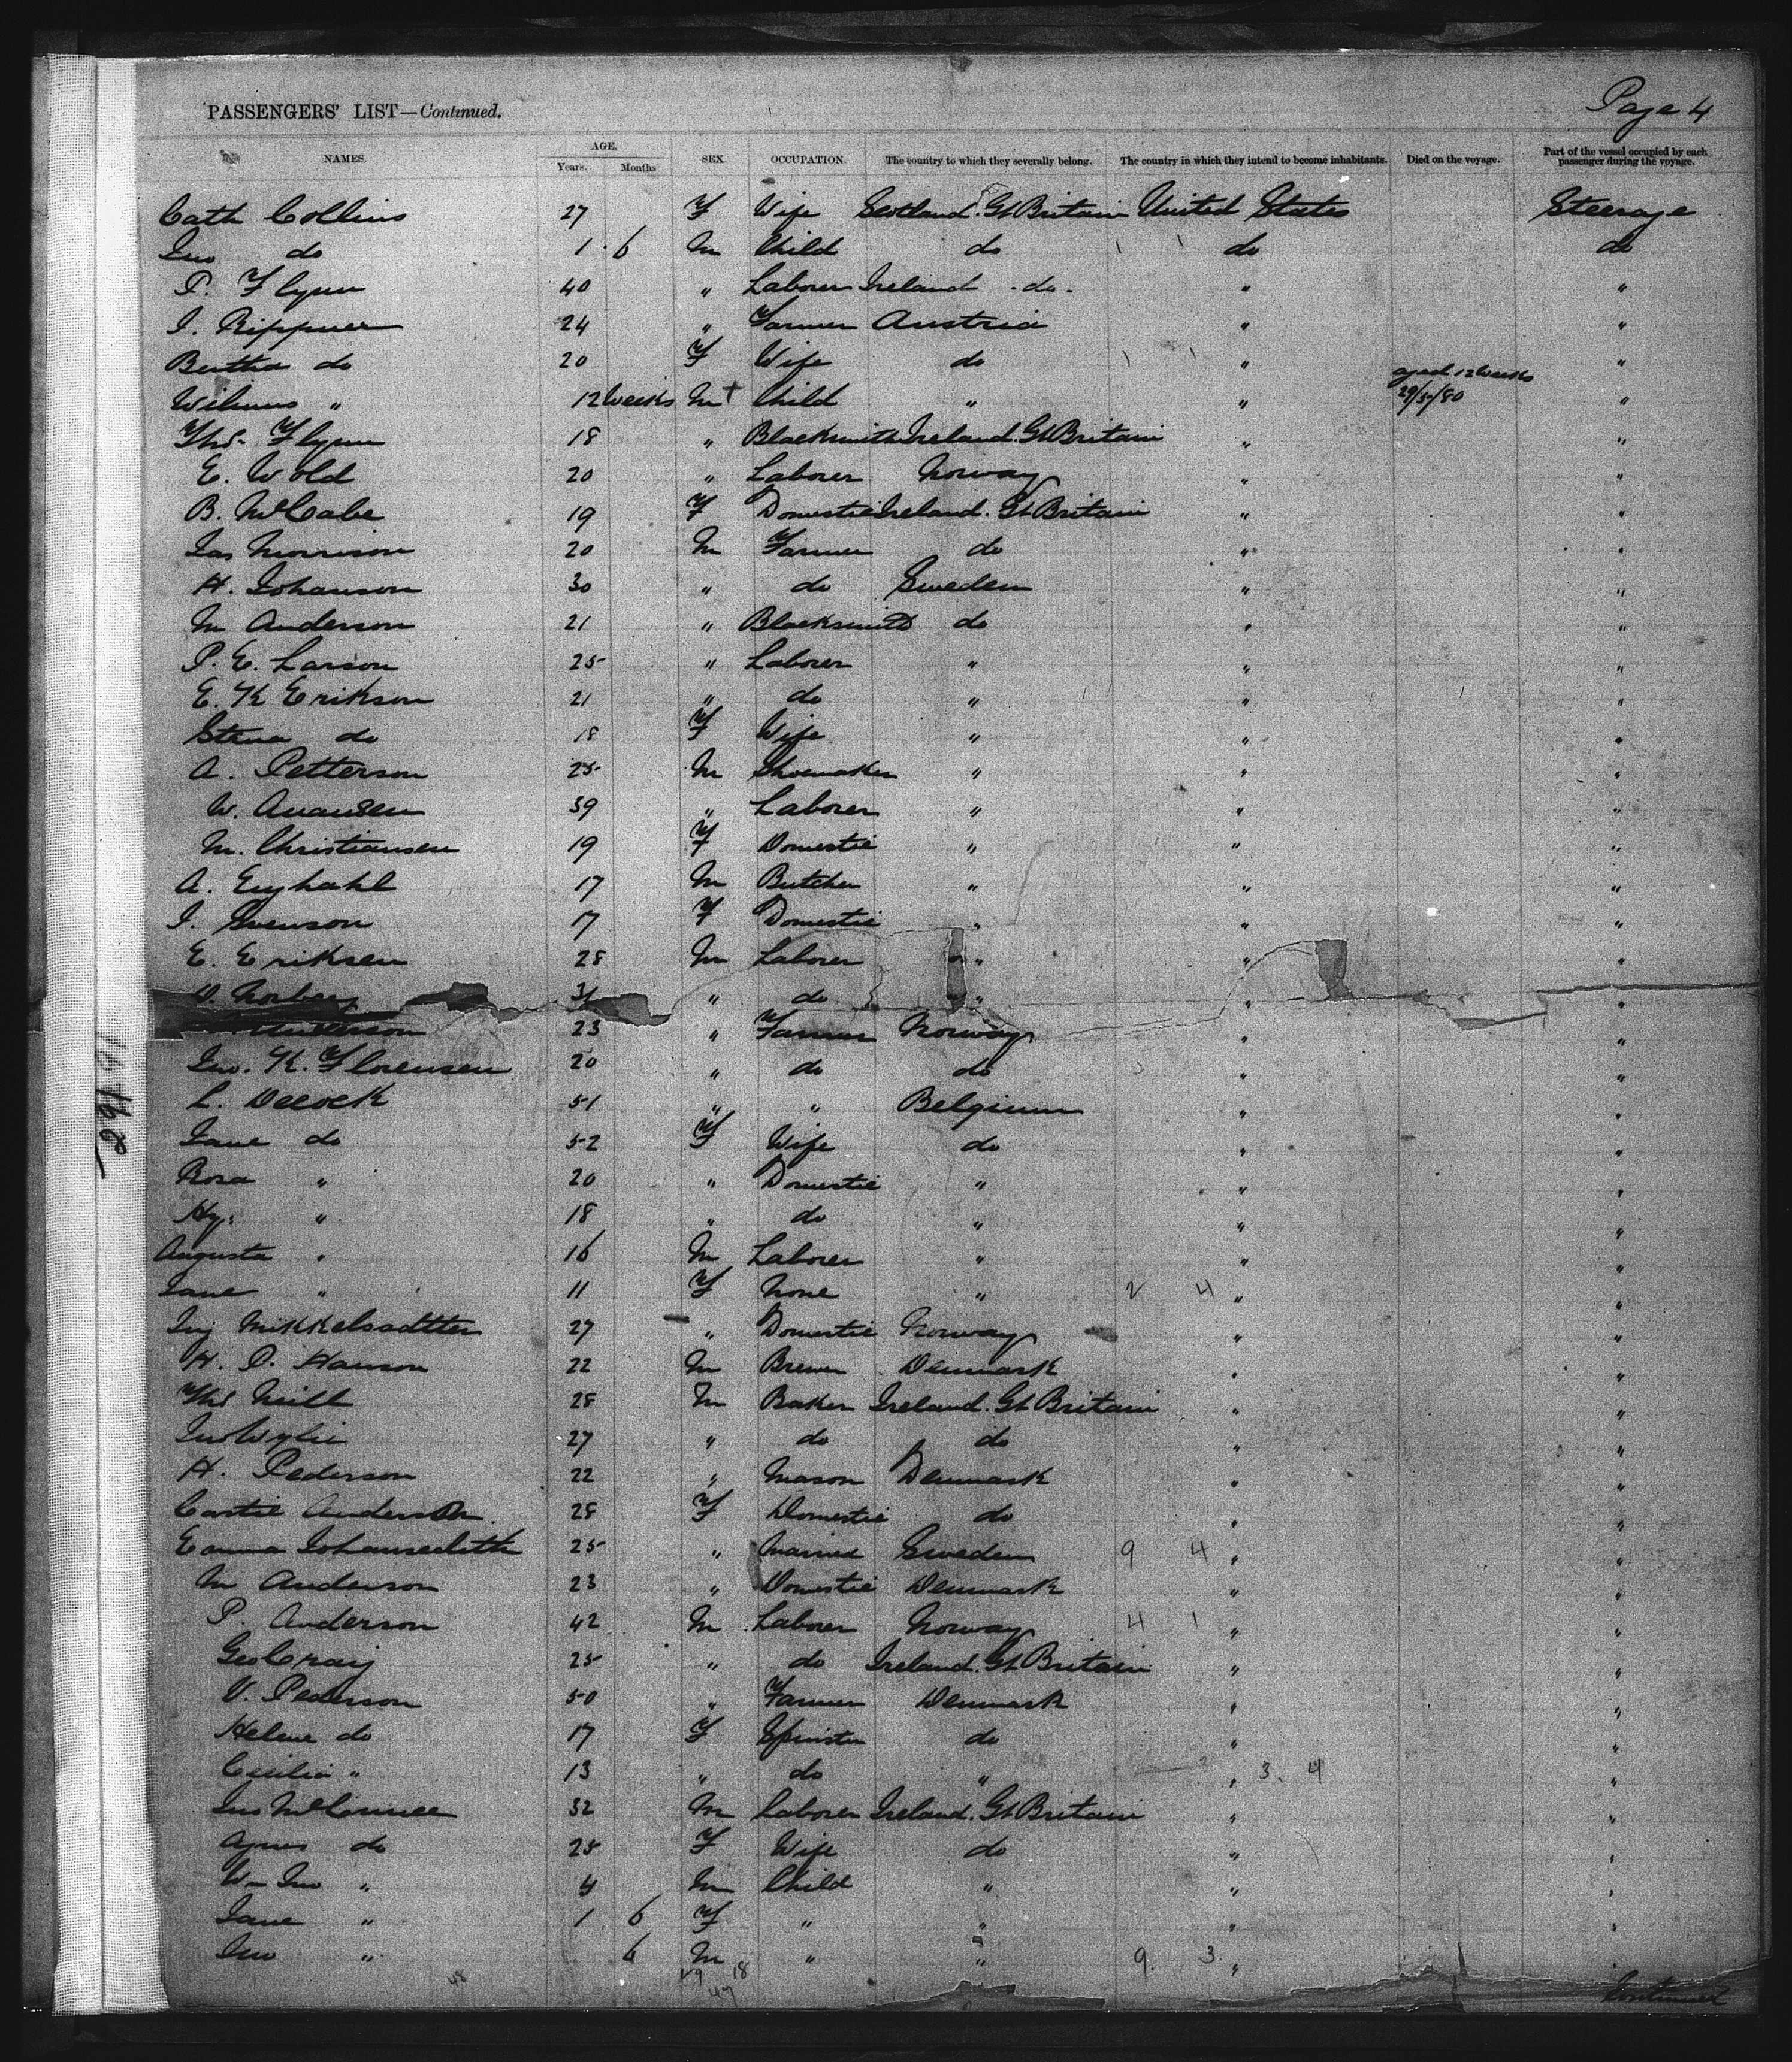 PASSENGERS' LIST—Continued. Page 4
NAMES. AGE. Years. Months SEX. OCCUPATION. The country to which they severally belong. The country in which they intend to become inhabitants. Died on the voyage. Part of the vessel occupied by each passenger during the voyage.
Cath Collins 27 F Wife Scotland. Gt Britain United States Steerage
Jno do 1 6 M Child do do do
P. Flynn 40 " Laborer Ireland do " "
I. Rippner 24 " Farmer Austria " "
Bertha do 20 F Wife do " "
" 12 Weeks M + Child " " aged 12 Weeks 29/5/80 "
Thos Flynn 18 " Blacksmith Ireland. Gt Britain " "
E. Wold 20 " Laborer Norway " "
B. McCabe 19 F Domestic Ireland. Gt Britain " "
Jas Morrison 20 M Farmer do " "
H. Johanson 30 " do Sweden " "
M Anderson 21 " Blacksmith do " "
P. E. Larson 25 " Laborer " " "
E. K Erikson 21 " do " " "
Stena do 18 F Wife " " "
A. Petterson 25 M Shoemaker " " "
W. 39 " Laborer " " "
M. Christiansen 19 F Domestic " " "
A. 17 M Butcher " " "
I. Svenson 17 F Domestic " " "
E. Eriksen 28 M Laborer " " "
Norberg 31 " do " " "
Anderson 23 " Farmer Norway " "
Jno. K. Florensen 20 " do do " "
L. Decock 51 " " Belgium " "
Jane do 52 F Wife do " "
Rosa " 20 " Domestic " " "
Hy: " 18 " do " " "
Augusta " 16 M Laborer " " "
Jane " 11 F None " 2 4 " "
Inj Mikkelsdtter 27 " Domestic Norway " "
H. P. Hanson 22 M Brewer Denmark " "
Thos Neill 28 M Baker Ireland. Gt Britain " "
Jno Wylie 27 " do do " "
H. Pederson 22 " Mason Denmark " "
Anderson 28 F Domestic do " "
Emma 25 " Married Sweden 9 4 " "
M Anderson 23 " Domestic Denmark " "
P. Anderson 42 M Laborer Norway 4 1 " "
Geo Craig 25 " do Ireland. Gt Britain " "
V. Pederson 50 " Farmer Denmark " "
Helene do 17 F Spinster do " "
Cecilia " 13 " do " " 3. 4 "
Jno 32 M Laborer Ireland. Gt Britain " "
Agnes do 25 F Wife do " "
Wm Jno " 4 M Child " " "
Jane " 1 6 F " " " "
Jno " 6 M " " 9 3 " "
48 29 18
47
Continued